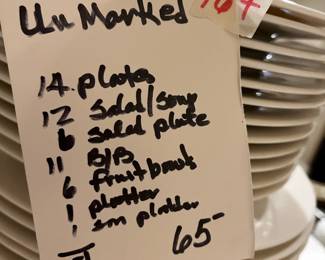 Un Marked
14 plates
12 salad/soup
6 salad plate
11 B/B
6 fruit bowls
1 platter
1 sm platter
65-